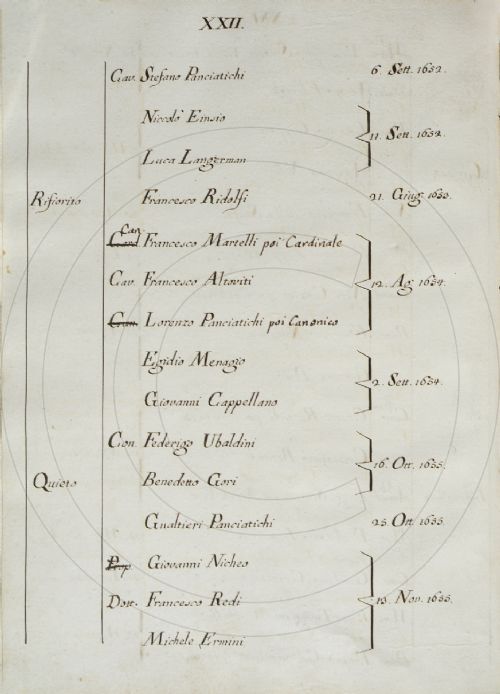 XXII.
Cav. Stefano Panciatichi 6. Sett. 1652.
Niccolò Einsio
11. Sett. 1652.
Luca Langerman
Rifiorito Francesco Ridolfi 21. Giug.
Can.
Card. Francesco Martelli poi Cardinale
Cav. Francesco Altoviti 12. Ag. 1654.
Can. Lorenzo Panciatichi poi Canonico
Egidio Menagio
2. Sett. 1654.
Giovanni Cappellano
Con. Federigo Ubaldini
16. Ott. 1655.
Quieto Benedetto Gori
Gualtieri Panciatichi 25. Ott. 1655.
Giovanni Nicheo
Dott. Francesco Redi Nov. 1655.
Michele Ermini